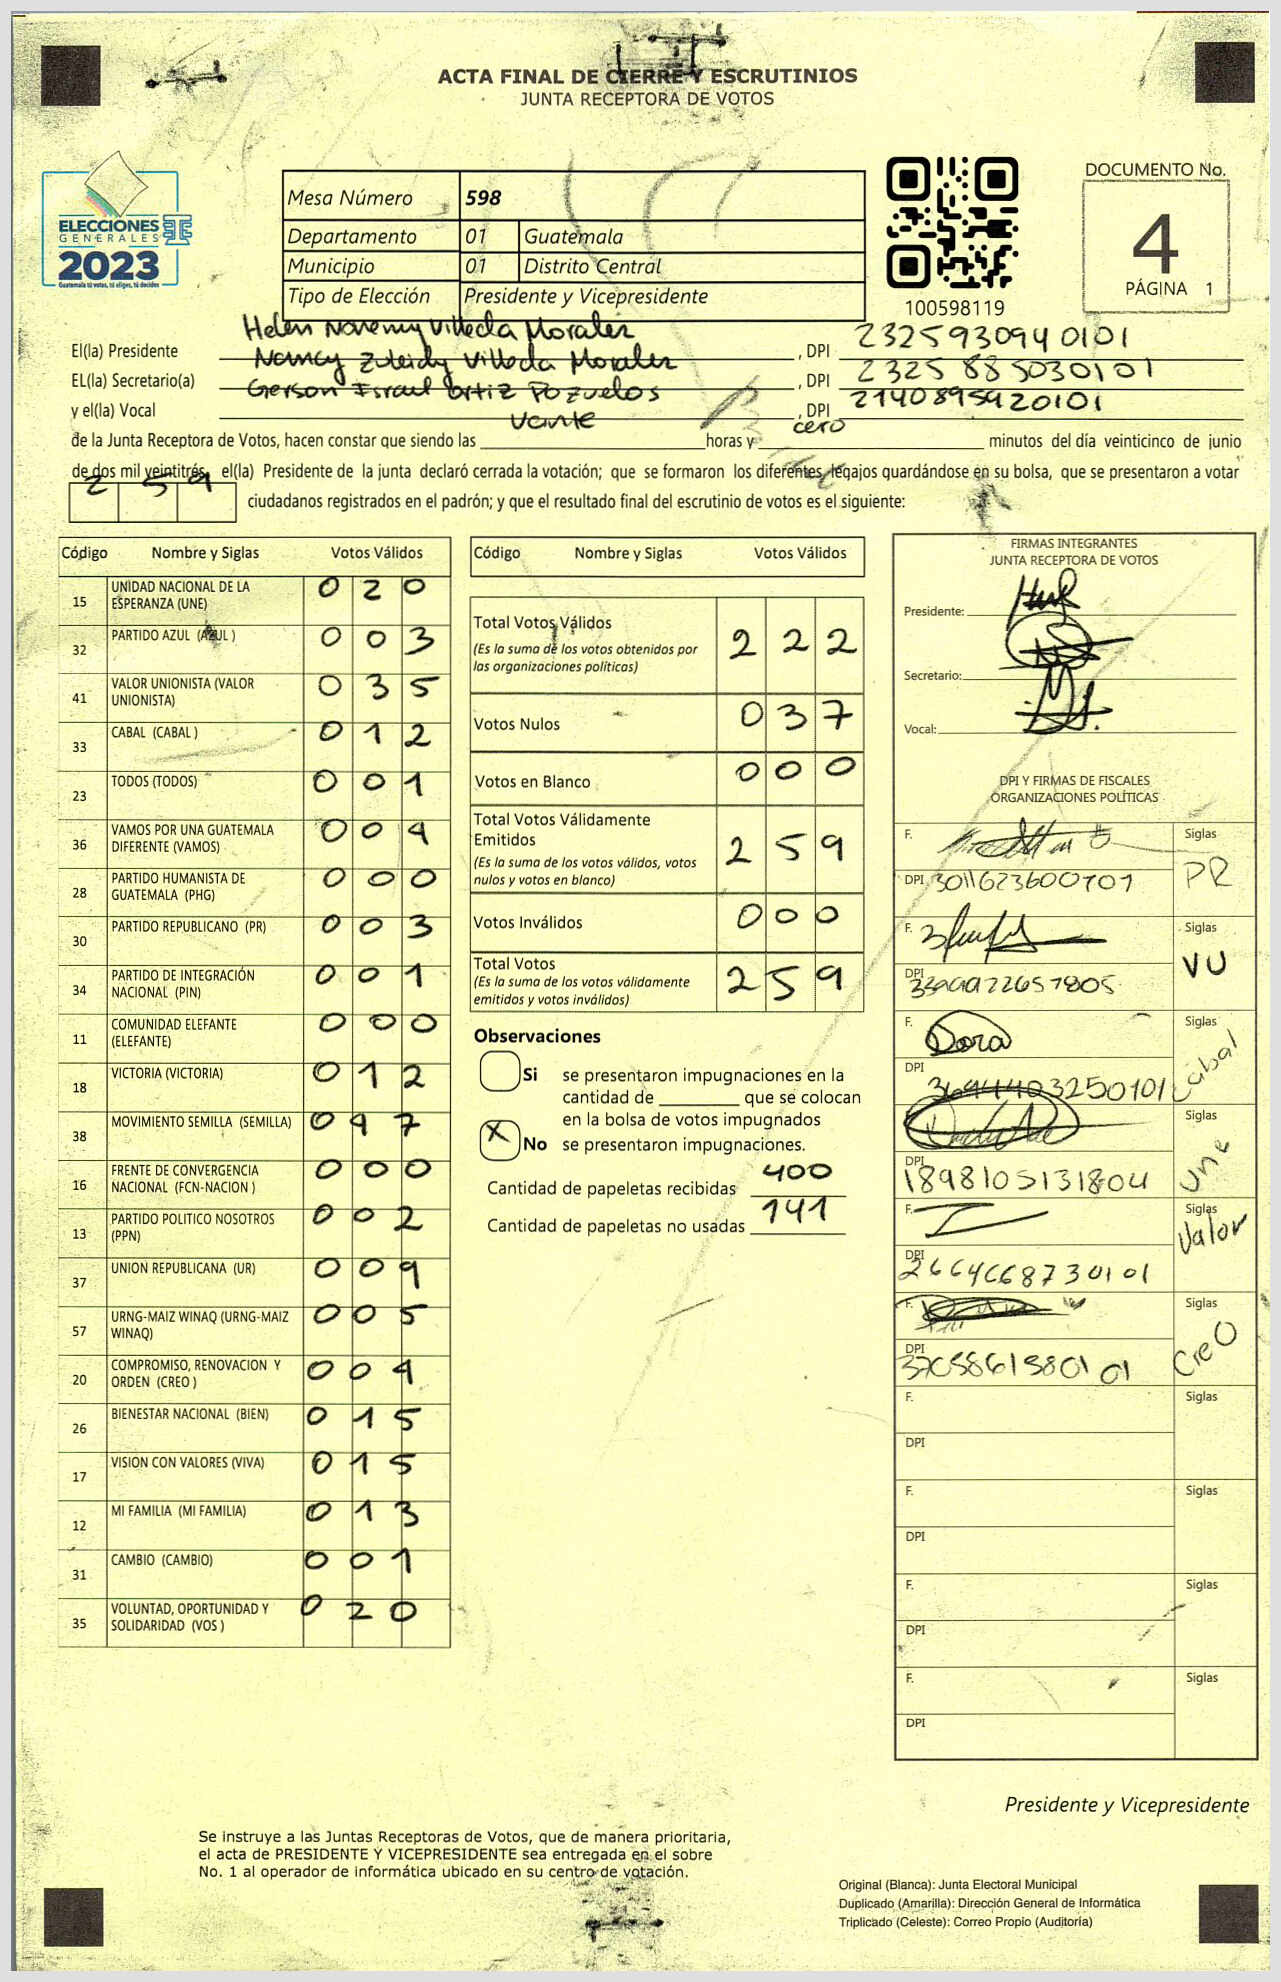 ACTA FINAL DE CIERRE Y ESCRUTINIOS
JUNTA RECEPTORA DE VOTOS
ELECCIONES
GENERALES
2023
Guatemala tú votas, tú eliges, tú decides
Mesa Número 598
Departamento 01 Guatemala
Municipio 01 Distrito Central
Tipo de Elección Presidente y Vicepresidente
100598119
DOCUMENTO No.
4
PÁGINA 1
El(la) Presidente Helen Noremy Villeda Morales, DPI 2325930940101
EL(la) Secretario(a) Nancy Zuleidy Villeda Morales, DPI 2325885030101
y el(la) Vocal Gerson Israel Ortiz Pozuelos, DPI 2140895920101
de la Junta Receptora de Votos, hacen constar que siendo las Veinte horas y cero minutos del día veinticinco de junio
de dos mil veintitrés, el(la) Presidente de la junta declaró cerrada la votación; que se formaron los diferentes legajos guardándose en su bolsa, que se presentaron a votar
259 ciudadanos registrados en el padrón; y que el resultado final del escrutinio de votos es el siguiente:
Código Nombre y Siglas Votos Válidos
15 UNIDAD NACIONAL DE LA ESPERANZA (UNE) 020
32 PARTIDO AZUL (AZUL ) 003
41 VALOR UNIONISTA (VALOR UNIONISTA) 035
33 CABAL (CABAL ) 012
23 TODOS (TODOS) 001
36 VAMOS POR UNA GUATEMALA DIFERENTE (VAMOS) 004
28 PARTIDO HUMANISTA DE GUATEMALA (PHG) 000
30 PARTIDO REPUBLICANO (PR) 003
34 PARTIDO DE INTEGRACIÓN NACIONAL (PIN) 001
11 COMUNIDAD ELEFANTE (ELEFANTE) 000
18 VICTORIA (VICTORIA) 012
38 MOVIMIENTO SEMILLA (SEMILLA) 047
16 FRENTE DE CONVERGENCIA NACIONAL (FCN-NACION ) 000
13 PARTIDO POLITICO NOSOTROS (PPN) 002
37 UNION REPUBLICANA (UR) 009
57 URNG-MAIZ WINAQ (URNG-MAIZ WINAQ) 005
20 COMPROMISO, RENOVACION Y ORDEN (CREO ) 004
26 BIENESTAR NACIONAL (BIEN) 015
17 VISION CON VALORES (VIVA) 015
12 MI FAMILIA (MI FAMILIA) 013
31 CAMBIO (CAMBIO) 001
35 VOLUNTAD, OPORTUNIDAD Y SOLIDARIDAD (VOS ) 020
Código Nombre y Siglas Votos Válidos
Total Votos Válidos 222
(Es la suma de los votos obtenidos por
las organizaciones políticas)
Votos Nulos 037
Votos en Blanco 000
Total Votos Válidamente
Emitidos 259
(Es la suma de los votos válidos, votos
nulos y votos en blanco)
Votos Inválidos 000
Total Votos 259
(Es la suma de los votos válidamente
emitidos y votos inválidos)
Observaciones
Si se presentaron impugnaciones en la
cantidad de ________ que se colocan
en la bolsa de votos impugnados
X No se presentaron impugnaciones.
Cantidad de papeletas recibidas 400
Cantidad de papeletas no usadas 141
FIRMAS INTEGRANTES
JUNTA RECEPTORA DE VOTOS
Presidente:
Secretario:
Vocal:
DPI Y FIRMAS DE FISCALES
ORGANIZACIONES POLÍTICAS
F. Siglas PR
DPI 3011623600701
F. Siglas VU
DPI
F. Dora Siglas Cabal
DPI
F. Siglas Une
DPI 1898105131804
F. Siglas Valor
DPI 2664668730101
F. Siglas CreO
DPI 3705861580101
F. Siglas
DPI
F. Siglas
DPI
F. Siglas
DPI
F. Siglas
DPI
Presidente y Vicepresidente
Se instruye a las Juntas Receptoras de Votos, que de manera prioritaria,
el acta de PRESIDENTE Y VICEPRESIDENTE sea entregada en el sobre
No. 1 al operador de informática ubicado en su centro de votación.
Original (Blanca): Junta Electoral Municipal
Duplicado (Amarilla): Dirección General de Informática
Triplicado (Celeste): Correo Propio (Auditoría)